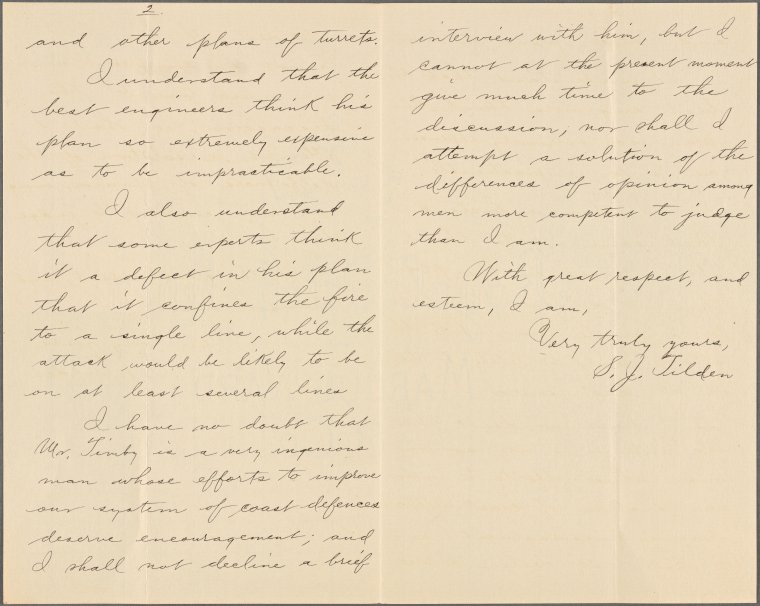 2.
and other plans of turrets.
I understand that the
best engineers think his
plan so extremely expensive
as to be impracticable.
I also understand
that some experts think
it a defect in his plan
that it confines the fire
to a single line, while the
attack would be likely to be
on at least several lines
I have no doubt that
Mr. Timby is a very ingenious
man whose efforts to improve
our system of coast defences
deserve encouragement; and
I shall not decline a brief
interview with him, but I
cannot at the present moment
give much time to the
discussion; nor shall I
attempt a solution of the
differences of opinion among
men more competent to judge
than I am.
With great respect, and
esteem, I am,
Very truly yours,
S. J. Tilden